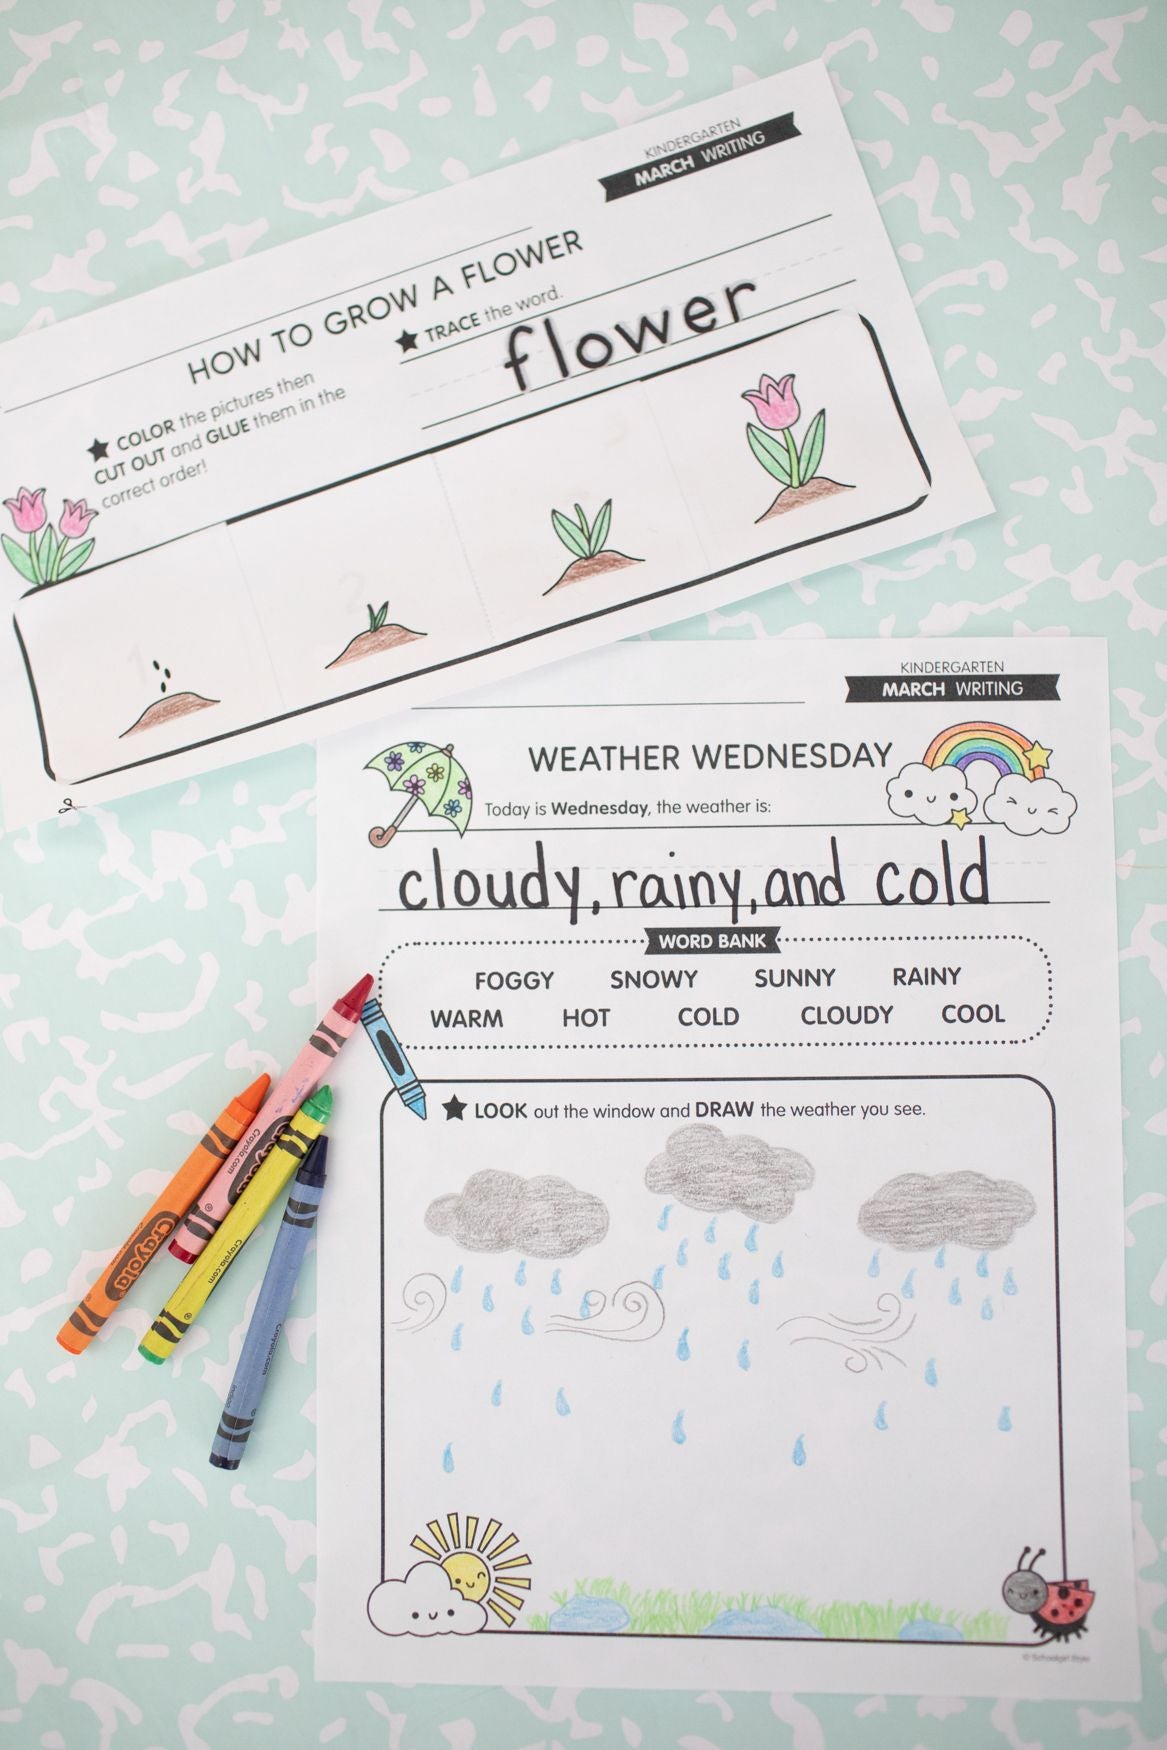 KINDERGARTEN
MARCH WRITING
HOW TO GROW A FLOWER
★ TRACE the word.
flower
★ COLOR the pictures then
CUT OUT and GLUE them in the
correct order!
1
2
KINDERGARTEN
MARCH WRITING
WEATHER WEDNESDAY
Today is Wednesday, the weather is:
cloudy, rainy, and cold
WORD BANK
FOGGY SNOWY SUNNY RAINY
WARM HOT COLD CLOUDY COOL
★ LOOK out the window and DRAW the weather you see.
Crayola.com
Crayola
Crayola
Crayola.com
Crayola.com
indigo
© Schoolgirl Style